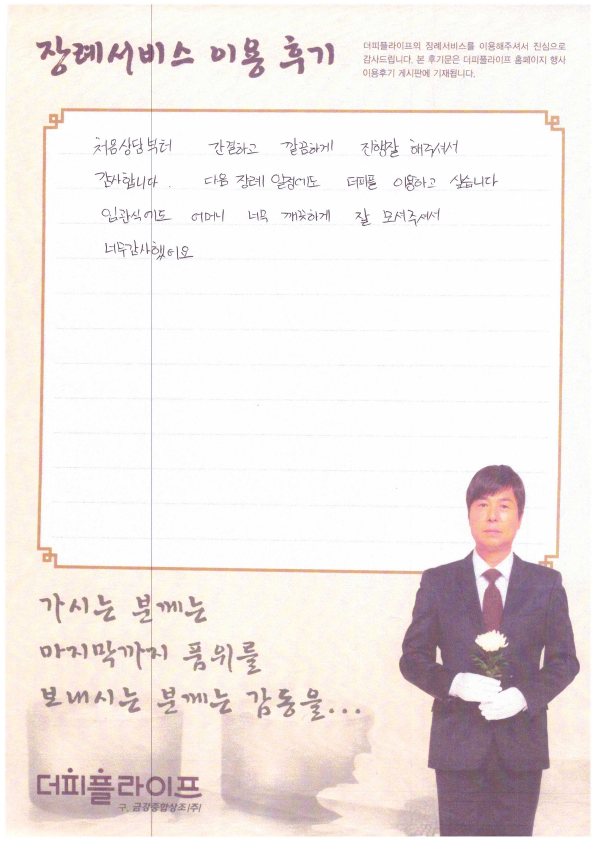 장례서비스 이용 후기
더피플라이프의 장례서비스를 이용해주셔서 진심으로
감사드립니다. 본 후기문은 더피플라이프 홈페이지 행사
이용후기 게시판에 기재됩니다.
처음상담부터 간결하고 깔끔하게 진행잘 해주셔서
감사합니다. 다음 장례 일정에도 더피플 이용하고 싶습니다
입관식에도 어머니 너무 깨끗하게 잘 모셔주셔서
너무감사했어요
가시는 분께는
마지막까지 품위를
보내시는 분께는 감동을...
더피플라이프
구. 금강종합상조(주)